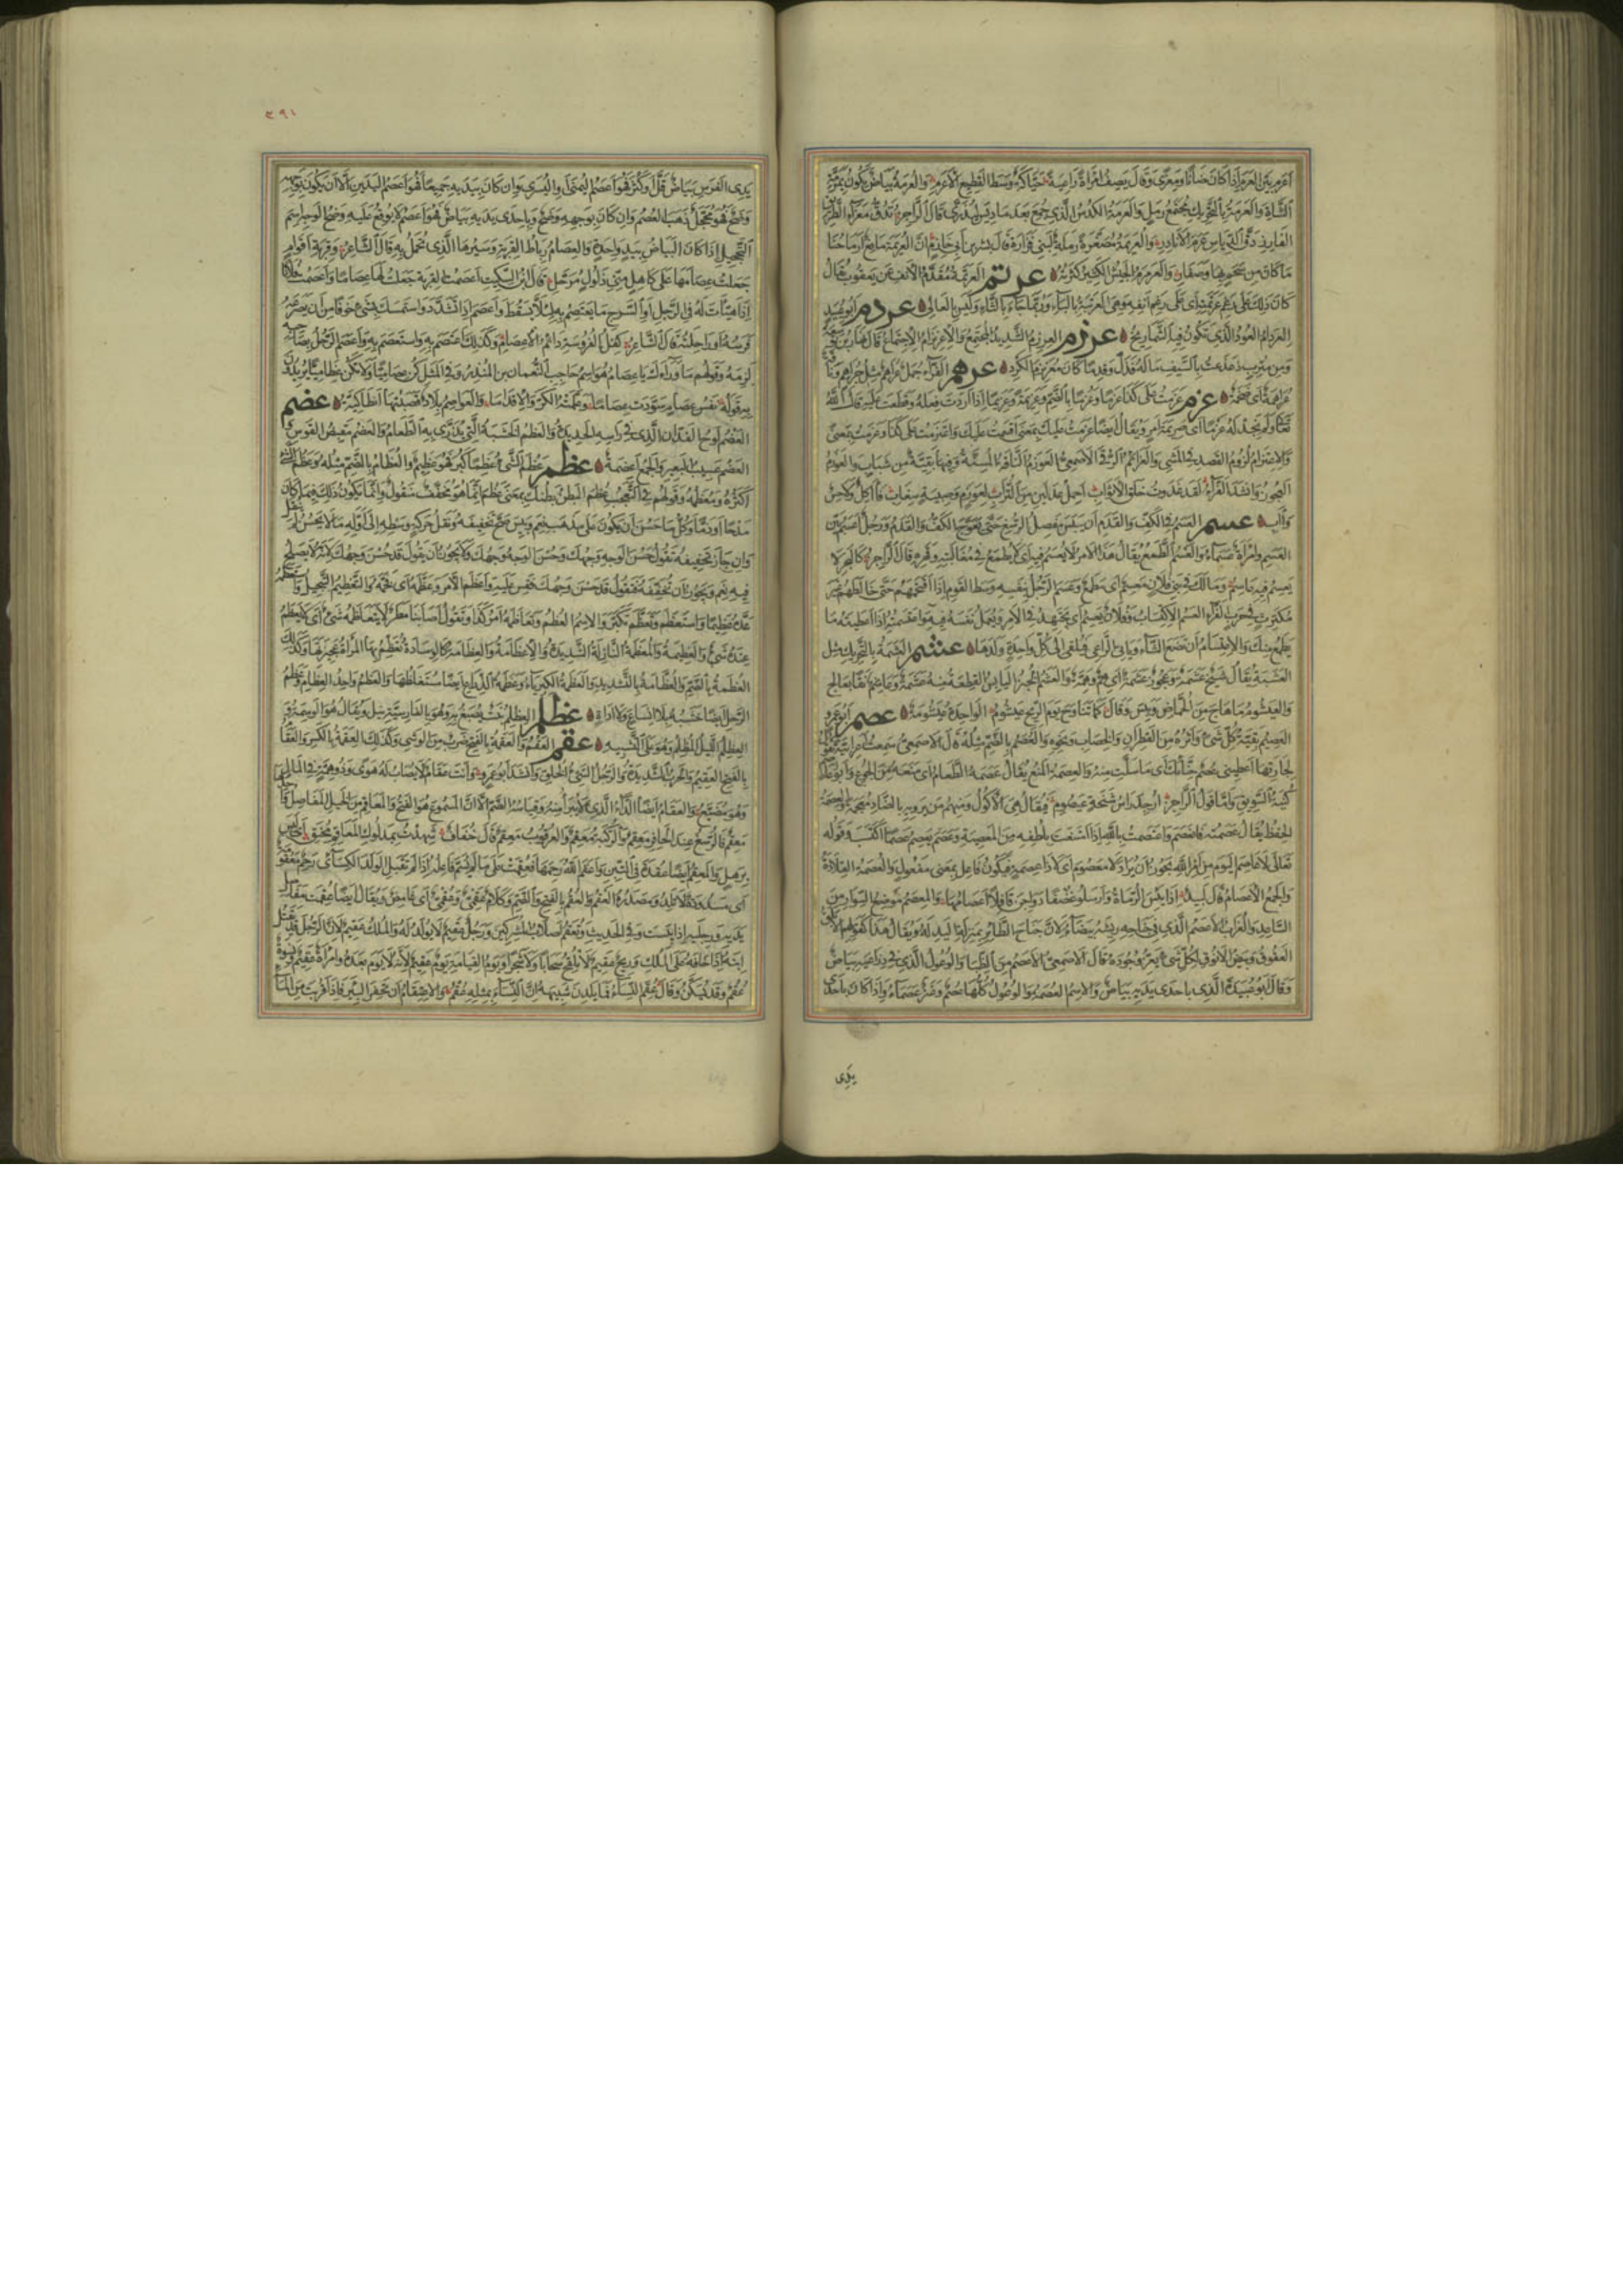 اعرم بين العرم اذا كان ضأنا ومعزى وقال يصف امراة راعية حياكة وسط القطيع الاعرم والعرمة بياض يكون بمرمة
الشاة والعرمة بالتحريك مجتمع رمل والعرمة الكدس الذي جمع بعد ما ديس ليذرى قال الراجز تدق معزاء الطريق
الفارز دق الدياس عرم الانادر والعريمة مصغرة رملة لبني فزارة قال بشر بن ابي خازم ان العريمة مانع ارماحنا
ما كان من سحم بها وصفار والعرمرم الجيش الكثير عرتم العرتمة مقدم الانف عن يعقوب يقال
كان ذلك على رغم عرتمته اي على رغم انفه وهي العرتبة بالباء وربما جاء بالثاء وليس بالعالي عردم ابو عبيد
العردام العود الذي تكون فيه الشماريخ عرزم العرزم الشديد المجتمع والاعرنزام الاجتماع قال نهار بن توسعة
ومن مترب دعدعت بالسيف ماله فذل وقدما كان معرنزم الكرد عرهم الفراء جمل عراهم مثل جراهم وناقة
عراهمة اي ضخمة عزم عزمت على كذا عزما وعزما بالضم وعزيمة وعزيما اذا اردت فعله وقطعت عليه قال الله
تعالى ولم نجد له عزما اي صريمة امر ويقال ايضا عزمت عليك بمعنى اقسمت عليك واعتزمت على كذا وعزمت بمعنى
والاعتزام لزوم القصد في المشي والعزائم الرقى الاصمعي العوزم الناقة المسنة وفيها بقية من شباب والعوزم
العجوز وانشد الفراء لقد غدوت خلق الاثواب احمل عدلين من التراب لعوزم وصبية سغاب فآكل ولاحس
وآب عسم العسم في الكف والقدم ان ييبس مفصل الرسغ حتى تعوج الكف والقدم ورجل اعسم بين
العسم وامراة عسماء والعسم الطمع يقال هذا الامر لا يعسم فيه اي لا يطمع في مغالبته وقهره قال الراجز كالبحر لا
يعسم فيه عاسم وما لك في بني فلان معسم اي مطمع وعسم الرجل بنفسه وسط القوم اذا اقتحمهم حتى خالطهم غير
مكترث في حرب الفراء العسم الاكتساب وفلان يعسم اي يجتهد في الامر ويعمل نفسه فيه واعسمته اذا اعطيته ما
يطمع منك والاعتسام ان تضع الشاء وياتي الراعي فيلقي الى كل واحدة ولدها عشم العشمة بالتحريك مثل
العشبة يقال شيخ عشمة وعجوز عشمة اي هم وهمة والعشم الخبز اليابس القطعة منه عشمة
والعيشوم ما هاج من الحماض ويبس وقال كما تناوح يوم الريح عيشوم الواحدة عيشومة عصم ابو عمرو
العصيم بقية كل شئ واثره من القطران والخضاب ونحوه والعصم بالضم مثله قال الاصمعي سمعت اعرابية تقول
لجارتها اعطيني عصم حنائك اي ما سلت منه والعصمة المنع يقال عصمه الطعام اي منعه من الجوع وابو عاصم
كنية السويق واما قول الراجز ارجد راس شيخة عيصوم فيقال هي الاكول ومنهم من يرويه بالضاد معجمة والعصمة
الحفظ يقال عصمته فانعصم واعتصمت بالله اذا امتنعت بلطفه من المعصية وعصم يعصم عصما اكتسب وقوله
تعالى لا عاصم اليوم من امر الله يجوز ان يراد لا معصوم اي لا ذا عصمة فيكون فاعل بمعنى مفعول والعصمة القلادة
والجمع الاعصام قال لبيد اذا يئس الرماة وارسلوا غضفا دواجن قافلا اعصامها والمعصم موضع السوار من
الساعد والغراب الاعصم الذي في جناحه ريشة بيضاء لان جناح الطائر بمنزلة اليد له ويقال هذا كقولهم الابلق
العقوق وبيض الانوق لكل شئ يعز وجوده قال الاصمعي الاعصم من الظباء والوعول الذي في ذراعيه بياض
وقال ابو عبيدة الذي باحدى يديه بياض والاسم العصمة والوعول كلها عصم وعنز عصماء واذا كان باحدى
يدي
٣٩١
يدي الفرس بياض قل او كثر فهو اعصم اليمنى او اليسرى وان كان بيديه جميعا فهو اعصم اليدين الا ان يكون بوجهه
وضح فهو محجل ذهب العصم وان كان بوجهه وضح وباحدى يديه بياض فهو اعصم لا يوقع عليه وضح الوجه اسم
التحجيل اذا كان البياض بيد واحدة والعصام رباط القربة وسيرها الذي تحمل به قال الشاعر وقربة اقوام
جعلت عصامها على كاهل مني ذلول مرحل قال ابن السكيت اعصمت القربة جعلت لها عصاما واعصمت فلانا
اذا هيأت له في الرحل او السرج ما يعتصم به لئلا يسقط واعصم اذا تشدد واستمسك بشئ خوفا من ان يصرعه
فرسه او راحلته قال الشاعر كفل الفروسة دائم الاعصام وكذلك اعتصم به واستعصم به واعصم الرجل بصاحبه
لزمه وقولهم ما وراءك يا عصام هو اسم حاجب النعمان بن المنذر وفي المثل كن عصاميا ولا تكن عظاميا يريدون
به قوله نفس عصام سودت عصاما وعلمته الكر والاقداما والعواصم بلاد قصبتها انطاكية عضم
العضم لوح الفدان الذي في راسه الحديدة والعضم الخشبة التي يذرى بها الطعام والعضم مقبض القوس
العضم عسيب البعير والجمع اعضمة عظم عظم الشئ عظما كبر فهو عظيم والعظام بالضم مثله وعظم الشئ
اكثره ومعظمه وقولهم في التعجب عظم البطن بطنك بمعنى عظم انما هو مخفف منقول وانما يكون ذلك فيما كان
مدحا او ذما وكل ما حسن ان يكون على مذهب نعم وبئس صح تخفيفه ونقل حركة وسطه الى اوله وما لا يحسن لم ينقل
وان جاز تخفيفه تقول حسن الوجه وجهك وحسن الوجه وجهك ولا يجوز ان يقول قد حسن وجهك لانه لا يصلح
فيه نعم ويجوز ان تخففه فتقول قد حسن وجهك فقس عليه واعظم الامر وعظمه اي فخمه والتعظيم التبجيل واستعظمه
عده عظيما واستعظم وتعظم تكبر والاسم العظم وتعاظمه امر كذا وتقول اصابنا مطر لا يتعاظمه شئ اي لا يعظم
عنده شئ والعظيمة والمعظمة النازلة الشديدة والاعظامة والعظامة كالوسادة تعظم بها المرأة عجيزتها وكذلك
العظمة بالضم والعظامة بالتشديد والعظمة الكبرياء وعظمة الذراع ايضا مستغلظها والعظم واحد العظام وعظم
الرحل ايضا خشبة بلا انساع ولا اداة عظلم العظلم نبت يصبغ به وهو بالفارسية نيل ويقال هو الوسمة و
العظلم الليل المظلم وهو على التشبيه عقم العقم والعقمة بالفتح ضرب من الوشي وكذلك العقمة بالكسر والعقام
بالفتح العقيم والحرب الشديدة والرجل السيئ الخلق وانشد ابو عمرو وانت عقام لا يصاب له هوى وذو همة في المال
وهو مضيع والعقام ايضا الداء الذي لا يبرأ منه وقياسه الضم الا ان المسموع هو الفتح والمعاقم من الخيل المفاصل
معقم فالرسغ عند الحافر معقم والركبة معقم والعرقوب معقم قال خفاف شهدت بمدلوك المعاقم محنق
والمعقم ايضا عقدة في التبن واعقم الله رحمها فعقمت على ما لم يسم فاعله اذا لم تقبل الولد الكسائي رحم معقومة
اي مسدودة لا تلد ومصدره العقم والعقم بالفتح والضم وكلام عقمي وعقمي اي غامض ويقال ايضا عقمت مفاصل
يديه ورجليه اذا يبست وفي الحديث وتعقم اصلاب المشركين ورجل عقيم لا يولد له والملك عقيم لان الرجل قد يقتل
ابنه اذا خافه على الملك وريح عقيم لا تلقح سحابا ولا شجرا ويوم القيامة يوم عقيم لانه لا يوم بعده وامراة عقيم ونسوة
عقم وقد يسكن وقال عقم النساء فما يلدن شبيهه ان النساء بمثله عقم والاعتقام ان تحفر البئر فاذا قربت من الماء